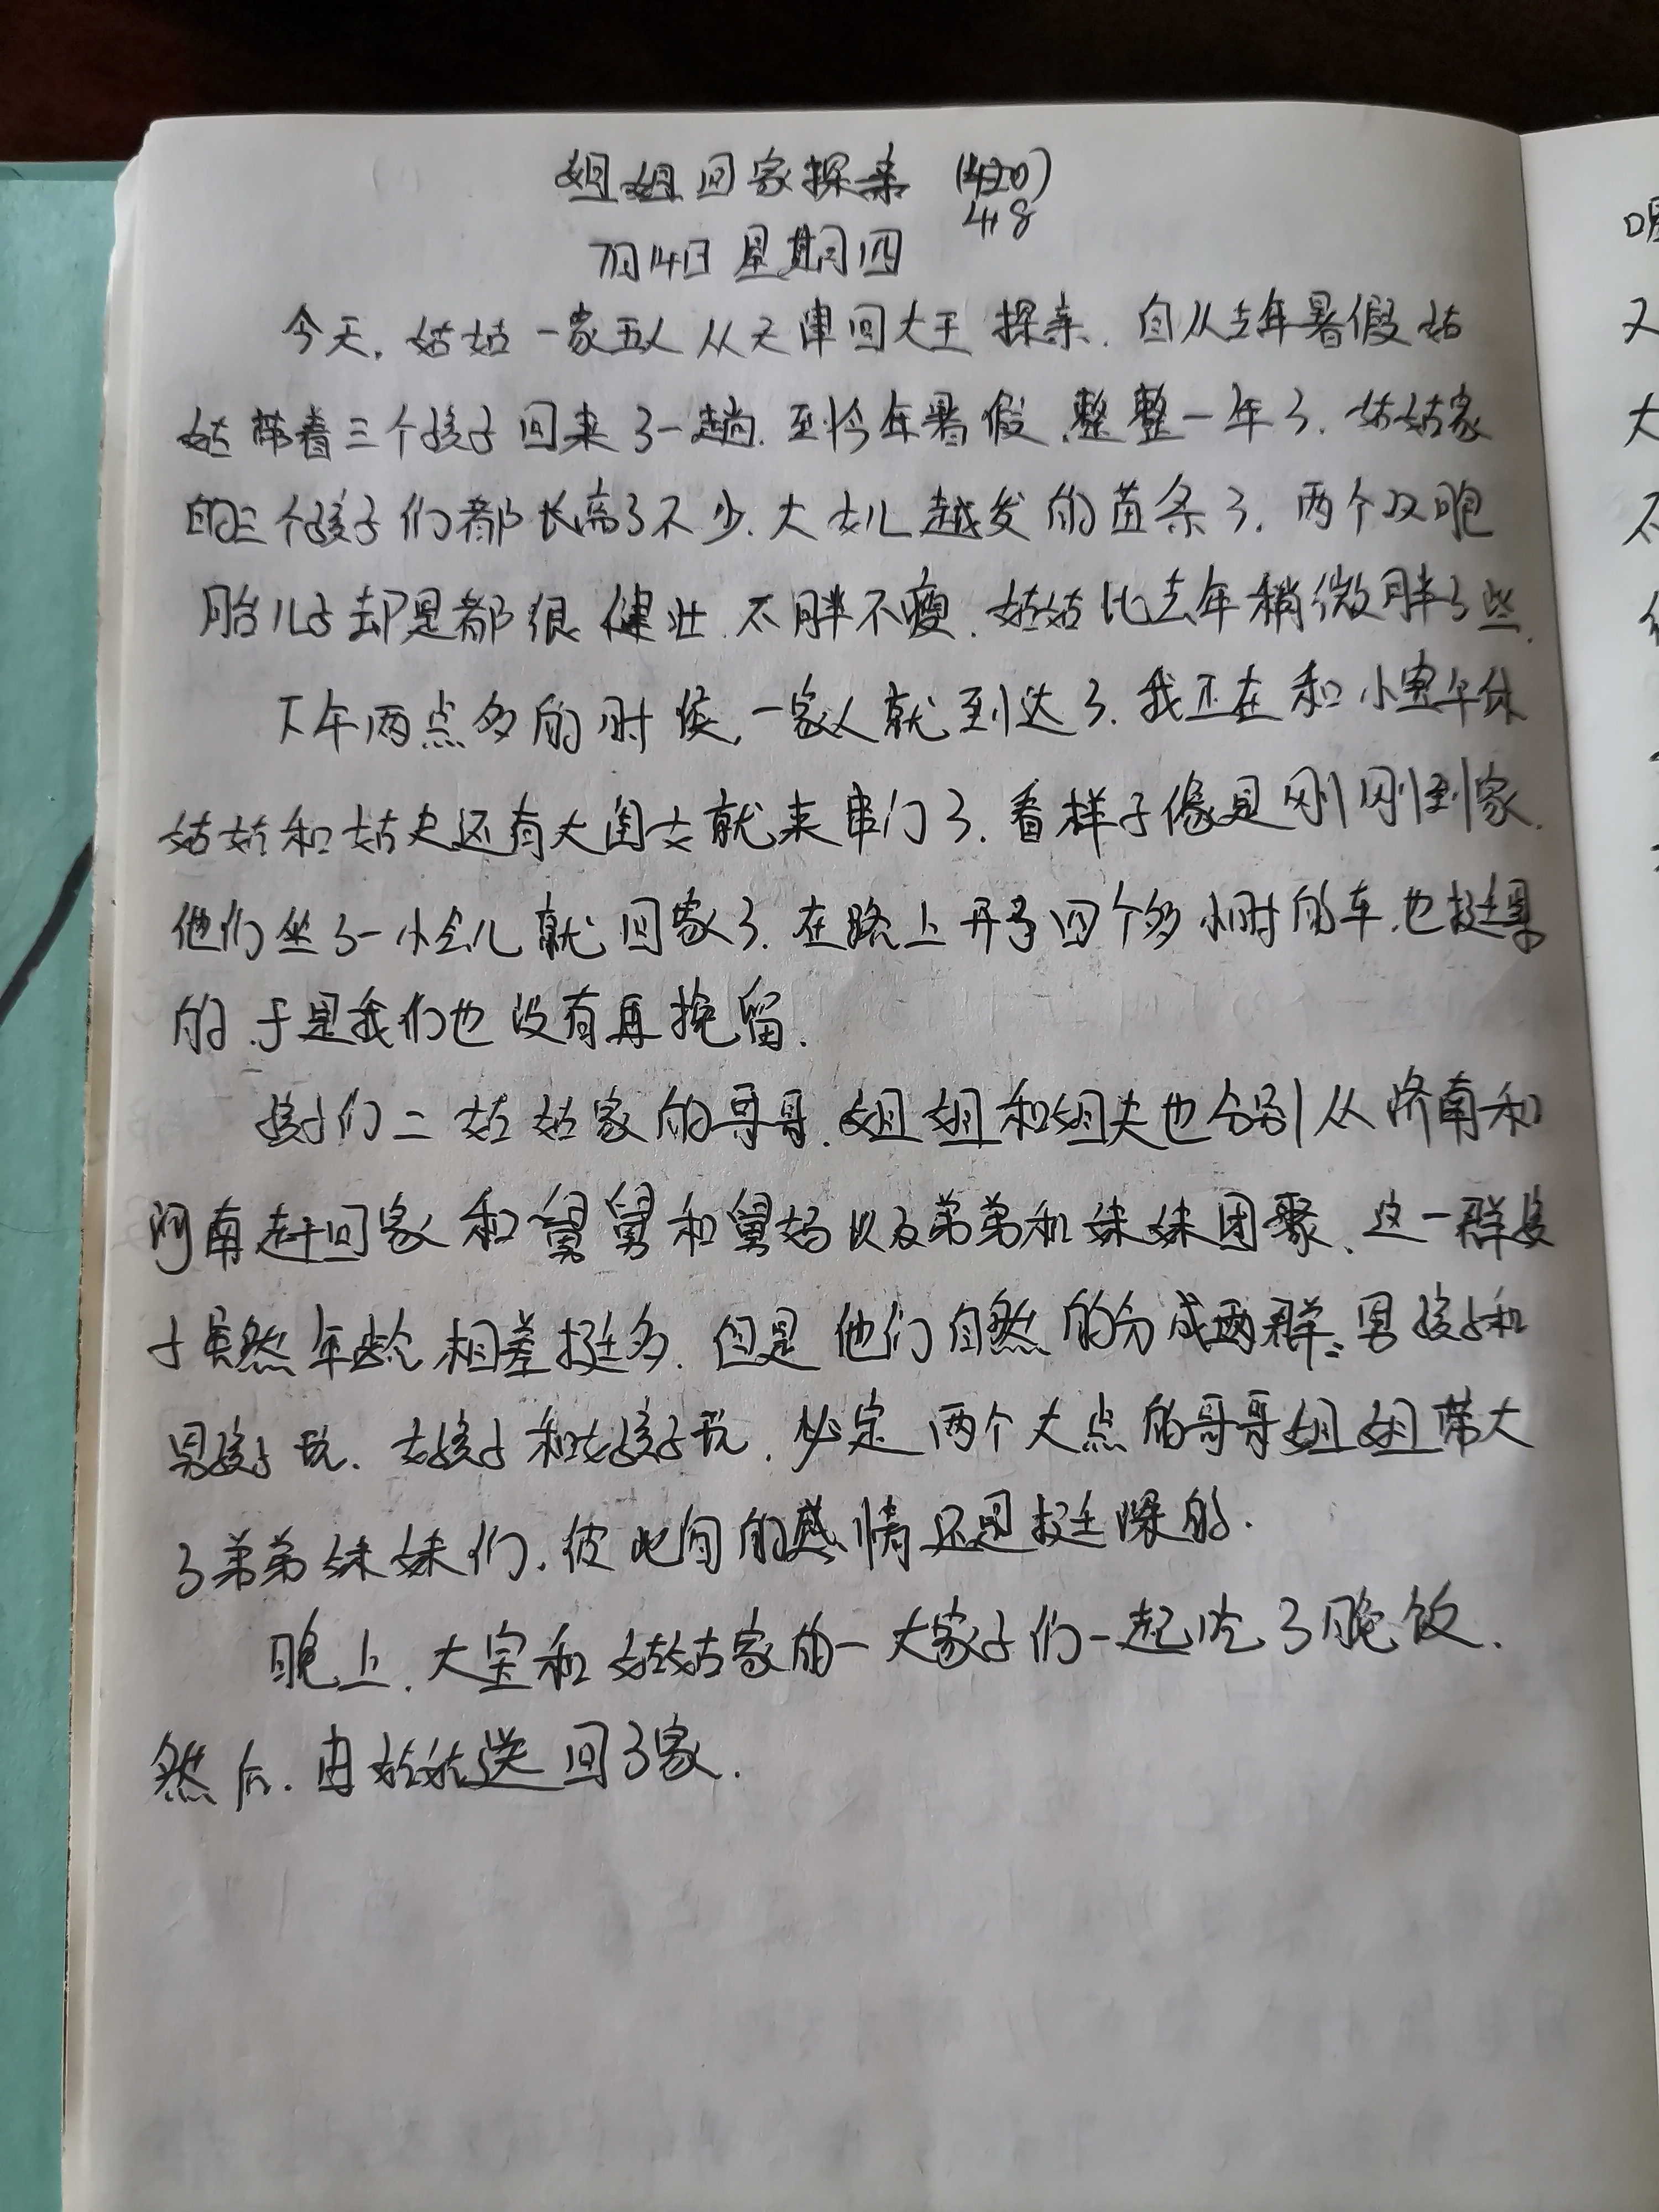 姐姐回家探亲 (420)
418
7月14日 星期四
今天,姑姑一家五人从天津回大王探亲.自从去年暑假姑
姑带着三个孩子回来了一趟.至今年暑假,整整一年了.姑姑家
的三个孩子们都长高了不少.大女儿越发的苗条了.两个双胞
胎儿子却是都很健壮.不胖不瘦.姑姑比去年稍微胖了些.
下午两点多的时候,一家人就到达了.我正在和小宝午休
姑姑和姑丈还有大闺女就来串门了.看样子像是刚刚到家.
他们坐了一小会儿就回家了.在路上开了四个多小时的车.也挺累
的.于是我们也没有再挽留.
孩子们二姑姑家的哥哥.姐姐和姐夫也分别从济南和
河南赶回家和舅舅和舅妈以及弟弟和妹妹团聚.这一群孩
子虽然年龄相差挺多.但是他们自然的分成两群:男孩子和
男孩子玩.女孩子和女孩子玩.必定两个大点的哥哥姐姐带大
了弟弟妹妹们.彼此间的感情还是挺深的.
晚上.大宝和姑姑家的一大家子们一起吃了晚饭.
然后.由姑姑送回了家.
又
大
不